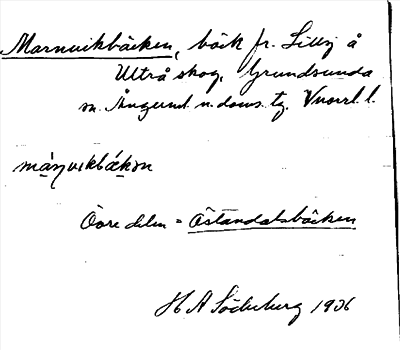 Marnvikbäcken, bäck fr. Lillsj å
Ultrå skog, Grundsunda
sn. Ångerml. n. doms. tg. Vnorrl. l.
Övre delen = Östandalsbäcken
H A Söderberg 1936